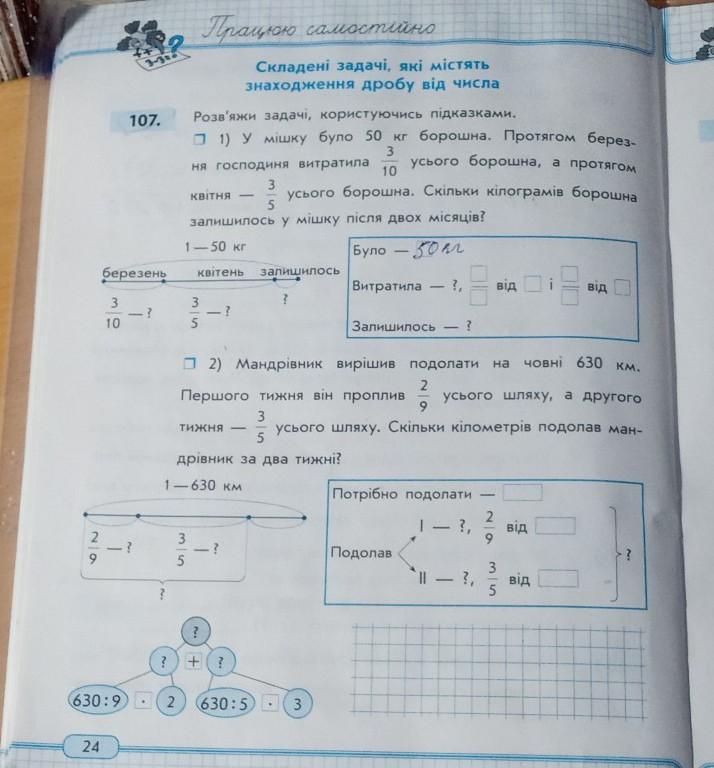 Працюю самостійно
Складені задачі, які містять
знаходження дробу від числа
107. Розв'яжи задачі, користуючись підказками.
1) У мішку було 50 кг борошна. Протягом берез-
ня господиня витратила 3/10 усього борошна, а протягом
квітня — 3/5 усього борошна. Скільки кілограмів борошна
залишилось у мішку після двох місяців?
1 — 50 кг
березень квітень залишилось
3/10 — ? 3/5 — ? ?
Було — 50 кг
Витратила — ?, від і від
Залишилось — ?
2) Мандрівник вирішив подолати на човні 630 км.
Першого тижня він проплив 2/9 усього шляху, а другого
тижня — 3/5 усього шляху. Скільки кілометрів подолав ман-
дрівник за два тижні?
1 — 630 км
2/9 — ? 3/5 — ?
?
Потрібно подолати —
I — ?, 2/9 від
Подолав ?
II — ?, 3/5 від
?
? + ?
630 : 9 · 2 630 : 5 · 3
24